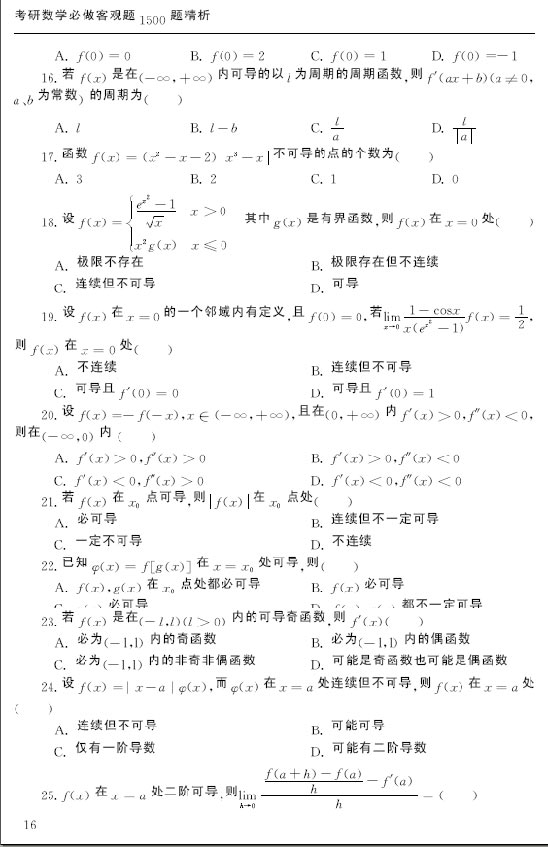 考研数学必做客观题1500题精析
A. f(0) = 0 B. f(0) = 2 C. f(0) = 1 D. f(0) = −1
16. 若 f(x) 是在(−∞, +∞) 内可导的以 l 为周期的周期函数,则 f′(ax + b)(a ≠ 0,
a、b 为常数) 的周期为( )
A. l B. l − b C. l/a D. l/|a|
17. 函数 f(x) = (x² − x − 2) x³ − x| 不可导的点的个数为( )
A. 3 B. 2 C. 1 D. 0
18. 设 f(x) = { (e^{x²} − 1)/√x x > 0
x²g(x) x ≤ 0 其中 g(x) 是有界函数,则 f(x) 在 x = 0 处( )
A. 极限不存在 B. 极限存在但不连续
C. 连续但不可导 D. 可导
19. 设 f(x) 在 x = 0 的一个邻域内有定义,且 f(0) = 0,若 lim_{x→0} (1 − cosx)/(x(e^{x²} − 1)) f(x) = 1/2,
则 f(x) 在 x = 0 处( )
A. 不连续 B. 连续但不可导
C. 可导且 f′(0) = 0 D. 可导且 f′(0) = 1
20. 设 f(x) = − f(− x), x ∈ (−∞, +∞),且在(0, +∞) 内 f′(x) > 0, f″(x) < 0,
则在(−∞, 0) 内( )
A. f′(x) > 0, f″(x) > 0 B. f′(x) > 0, f″(x) < 0
C. f′(x) < 0, f″(x) > 0 D. f′(x) < 0, f″(x) < 0
21. 若 f(x) 在 x₀ 点可导,则 |f(x)| 在 x₀ 点处( )
A. 必可导 B. 连续但不一定可导
C. 一定不可导 D. 不连续
22. 已知 φ(x) = f[g(x)] 在 x = x₀ 处可导,则( )
A. f(x), g(x) 在 x₀ 点处都必可导 B. f(x) 必可导
必可导 都不一定可导
23. 若 f(x) 是在(− l, l)(l > 0) 内的可导奇函数,则 f′(x)( )
A. 必为(−1,1) 内的奇函数 B. 必为(−1,1) 内的偶函数
C. 必为(−1,1) 内的非奇非偶函数 D. 可能是奇函数也可能是偶函数
24. 设 f(x) = | x − a | φ(x),而 φ(x) 在 x = a 处连续但不可导,则 f(x) 在 x = a 处
( )
A. 连续但不可导 B. 可能可导
C. 仅有一阶导数 D. 可能有二阶导数
25. f(x) 在 x = a 处二阶可导,则 lim_{h→0} ((f(a + h) − f(a))/h − f′(a))/h = ( )
16